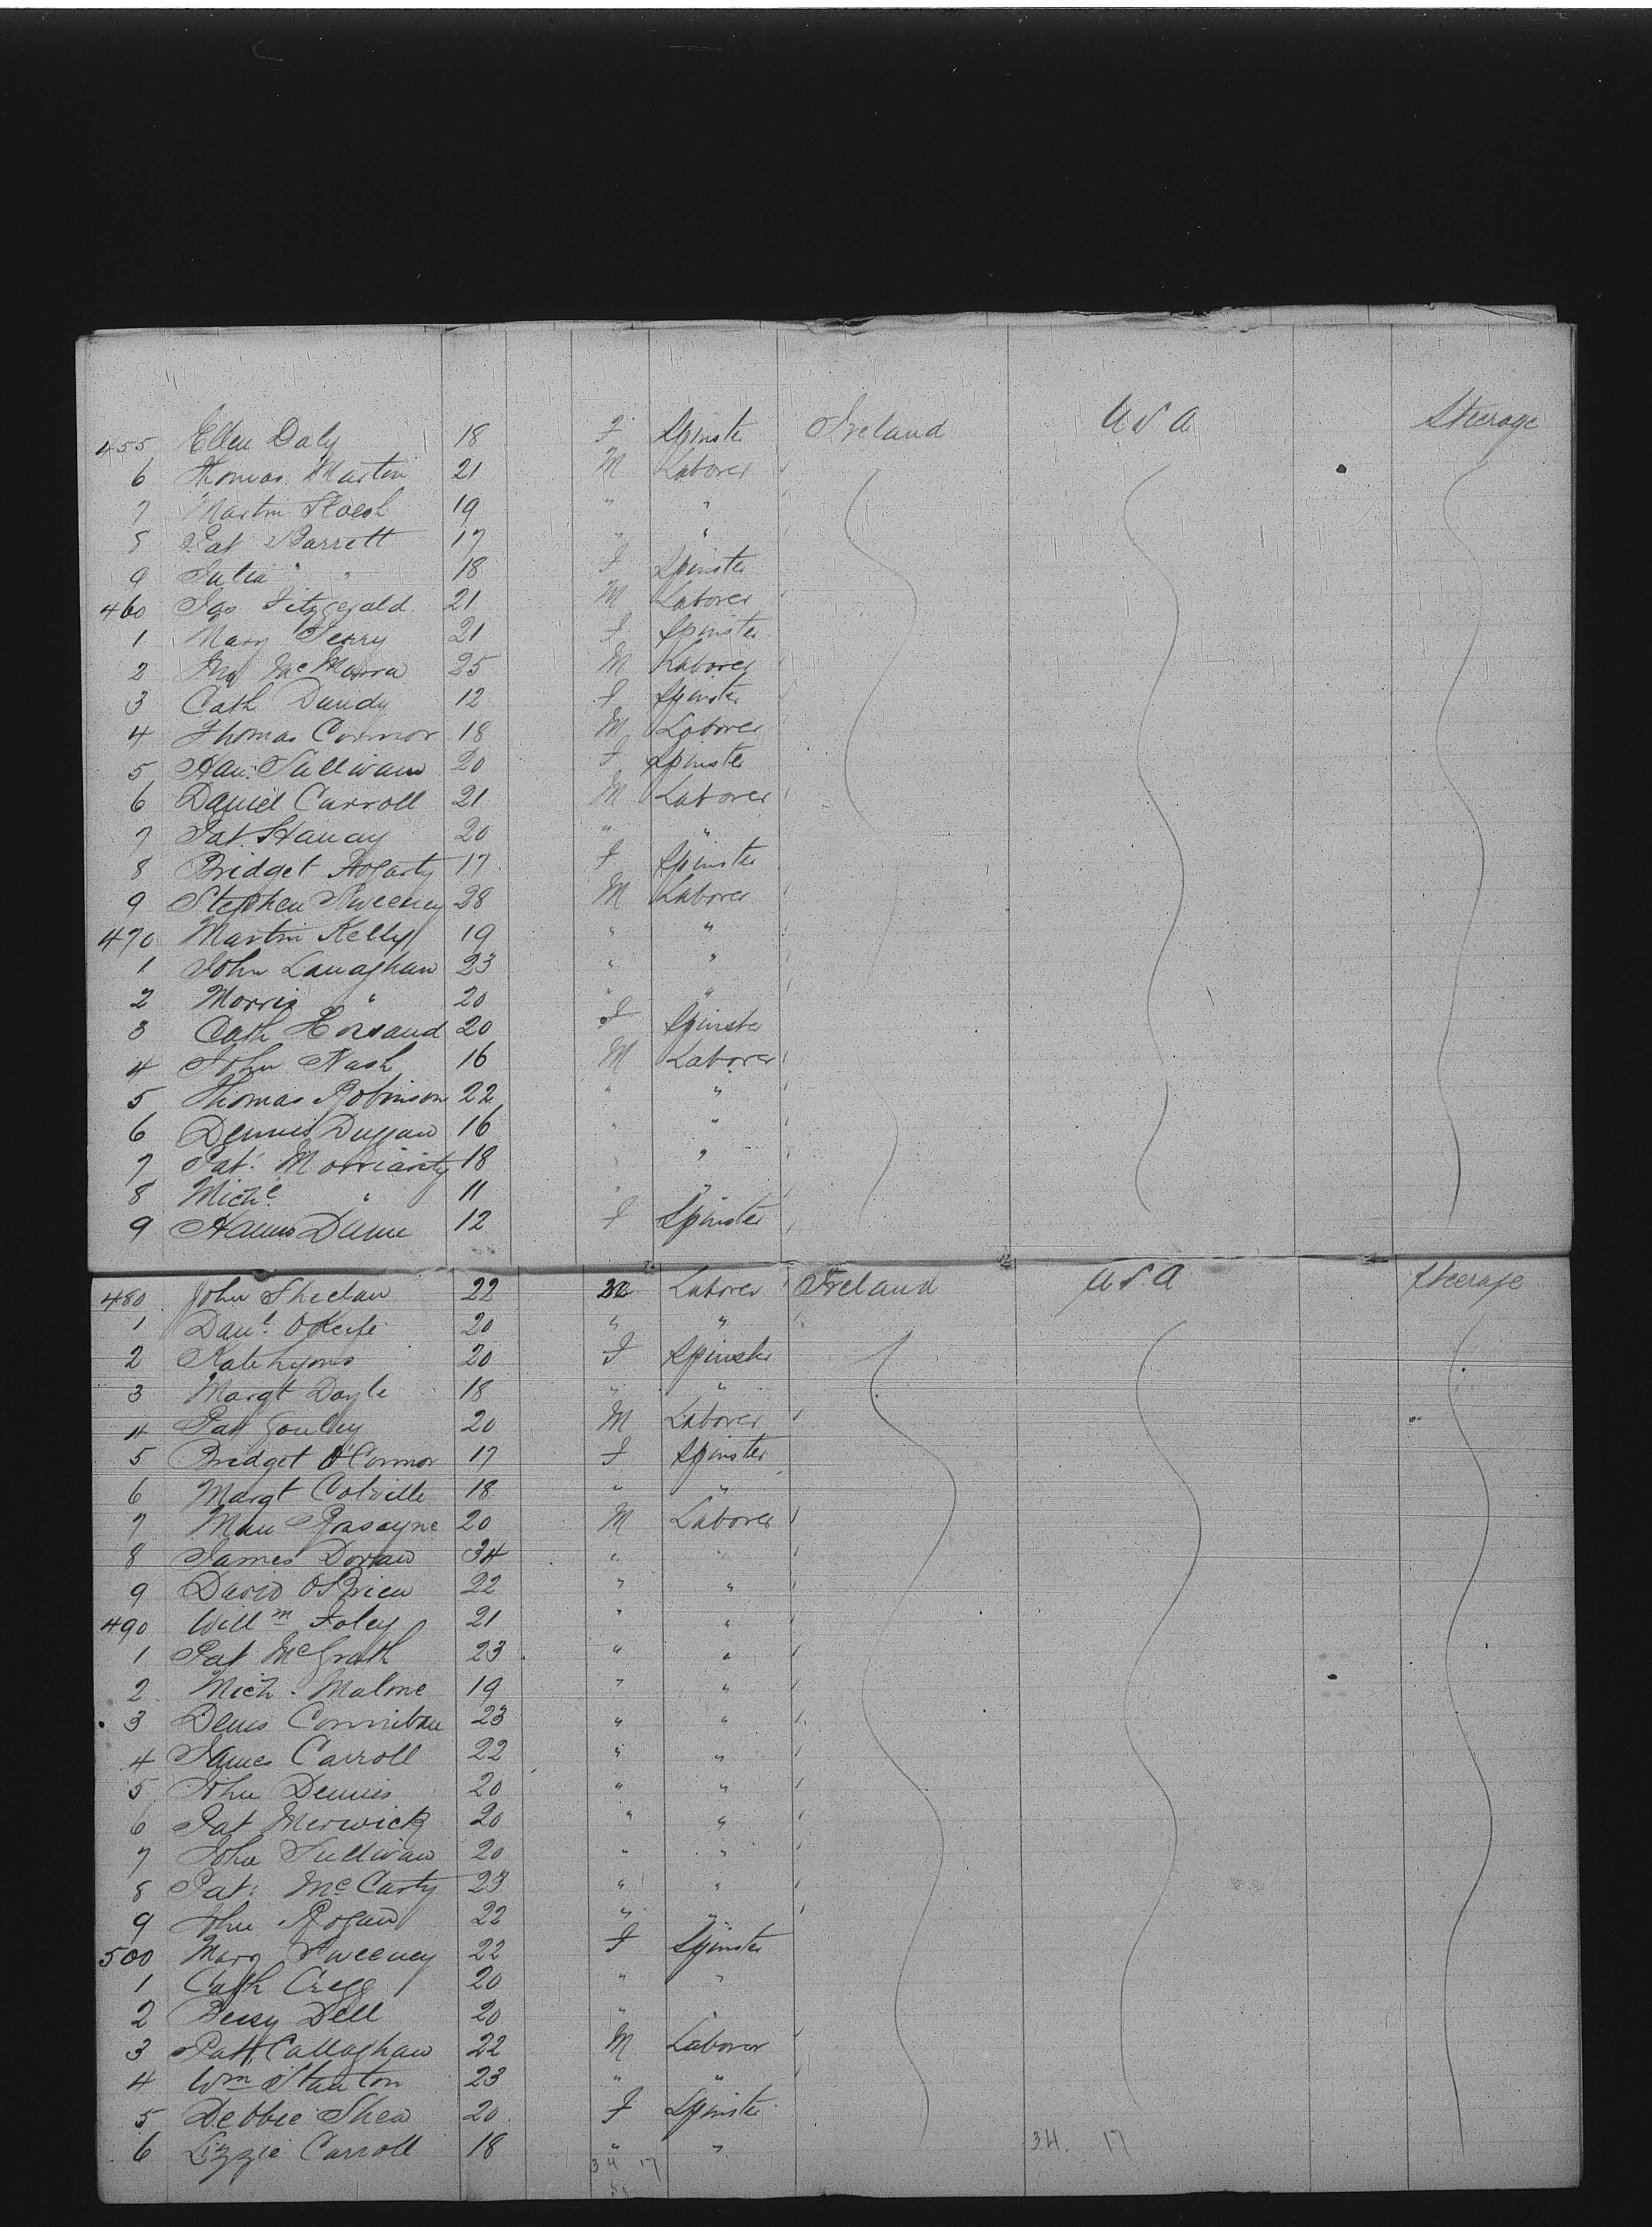 455 Ellen Daly 18 F Spinster Ireland USA Steerage
6 Thomas Martin 21 M Laborer
7 Martin 19 " "
8 Pat Barrett 17 " "
9 Julia " 18 F Spinster
460 Jas Fitzgerald 21 M Laborer
1 Mary Terry 21 F Spinster
2 Jno McMarra 25 M Laborer
3 Cath Dundy 12 F Spinster
4 Thomas Connor 18 M Laborer
5 Han. Sullivan 20 F Spinster
6 Daniel Carroll 21 M Laborer
7 Pat. 20 " "
8 Bridget Hogarty 17 F Spinster
9 Stephen Sweeney 28 M Laborer
470 Martin Kelly 19 " "
1 John Lanaghan 23 " "
2 Morris " 20 " "
3 Cath 20 F Spinster
4 John Nash 16 M Laborer
5 Thomas Robinson 22 " "
6 Dennis Duggan 16 " "
7 Pat. Morriarity 18 " "
8 Michl " 11 " "
9 Dunn 12 F Spinster
480 John Sheelan 22 M Laborer Ireland USA Steerage
1 Danl OKeefe 20 " "
2 Kate Lyons 20 F Spinster
3 Margt Doyle 18 " "
4 Pat 20 M Laborer
5 Bridget O'Connor 17 F Spinster
6 Margt Colville 18 " "
7 20 M Laborer
8 James Doran 34 " "
9 David OBrien 22 " "
490 Willm Foley 21 " "
1 Pat McGrath 23 " "
2 Mich. Malone 19 " "
3 Denis 23 " "
4 James Carroll 22 " "
5 John Dennis 20 " "
6 Pat Merwick 20 " "
7 John Sullivan 20 " "
8 Pat. McCarty 23 " "
9 John Rogan 22 " "
500 Mary Sweeney 22 F Spinster
1 Cath Cregg 20 " "
2 Bessy Dell 20 " "
3 Pat Callaghan 22 M Laborer
4 Wm Stanton 23 " "
5 Debbie Shea 20 F Spinster
6 Lizzie Carroll 18 " "
34 17 34. 17